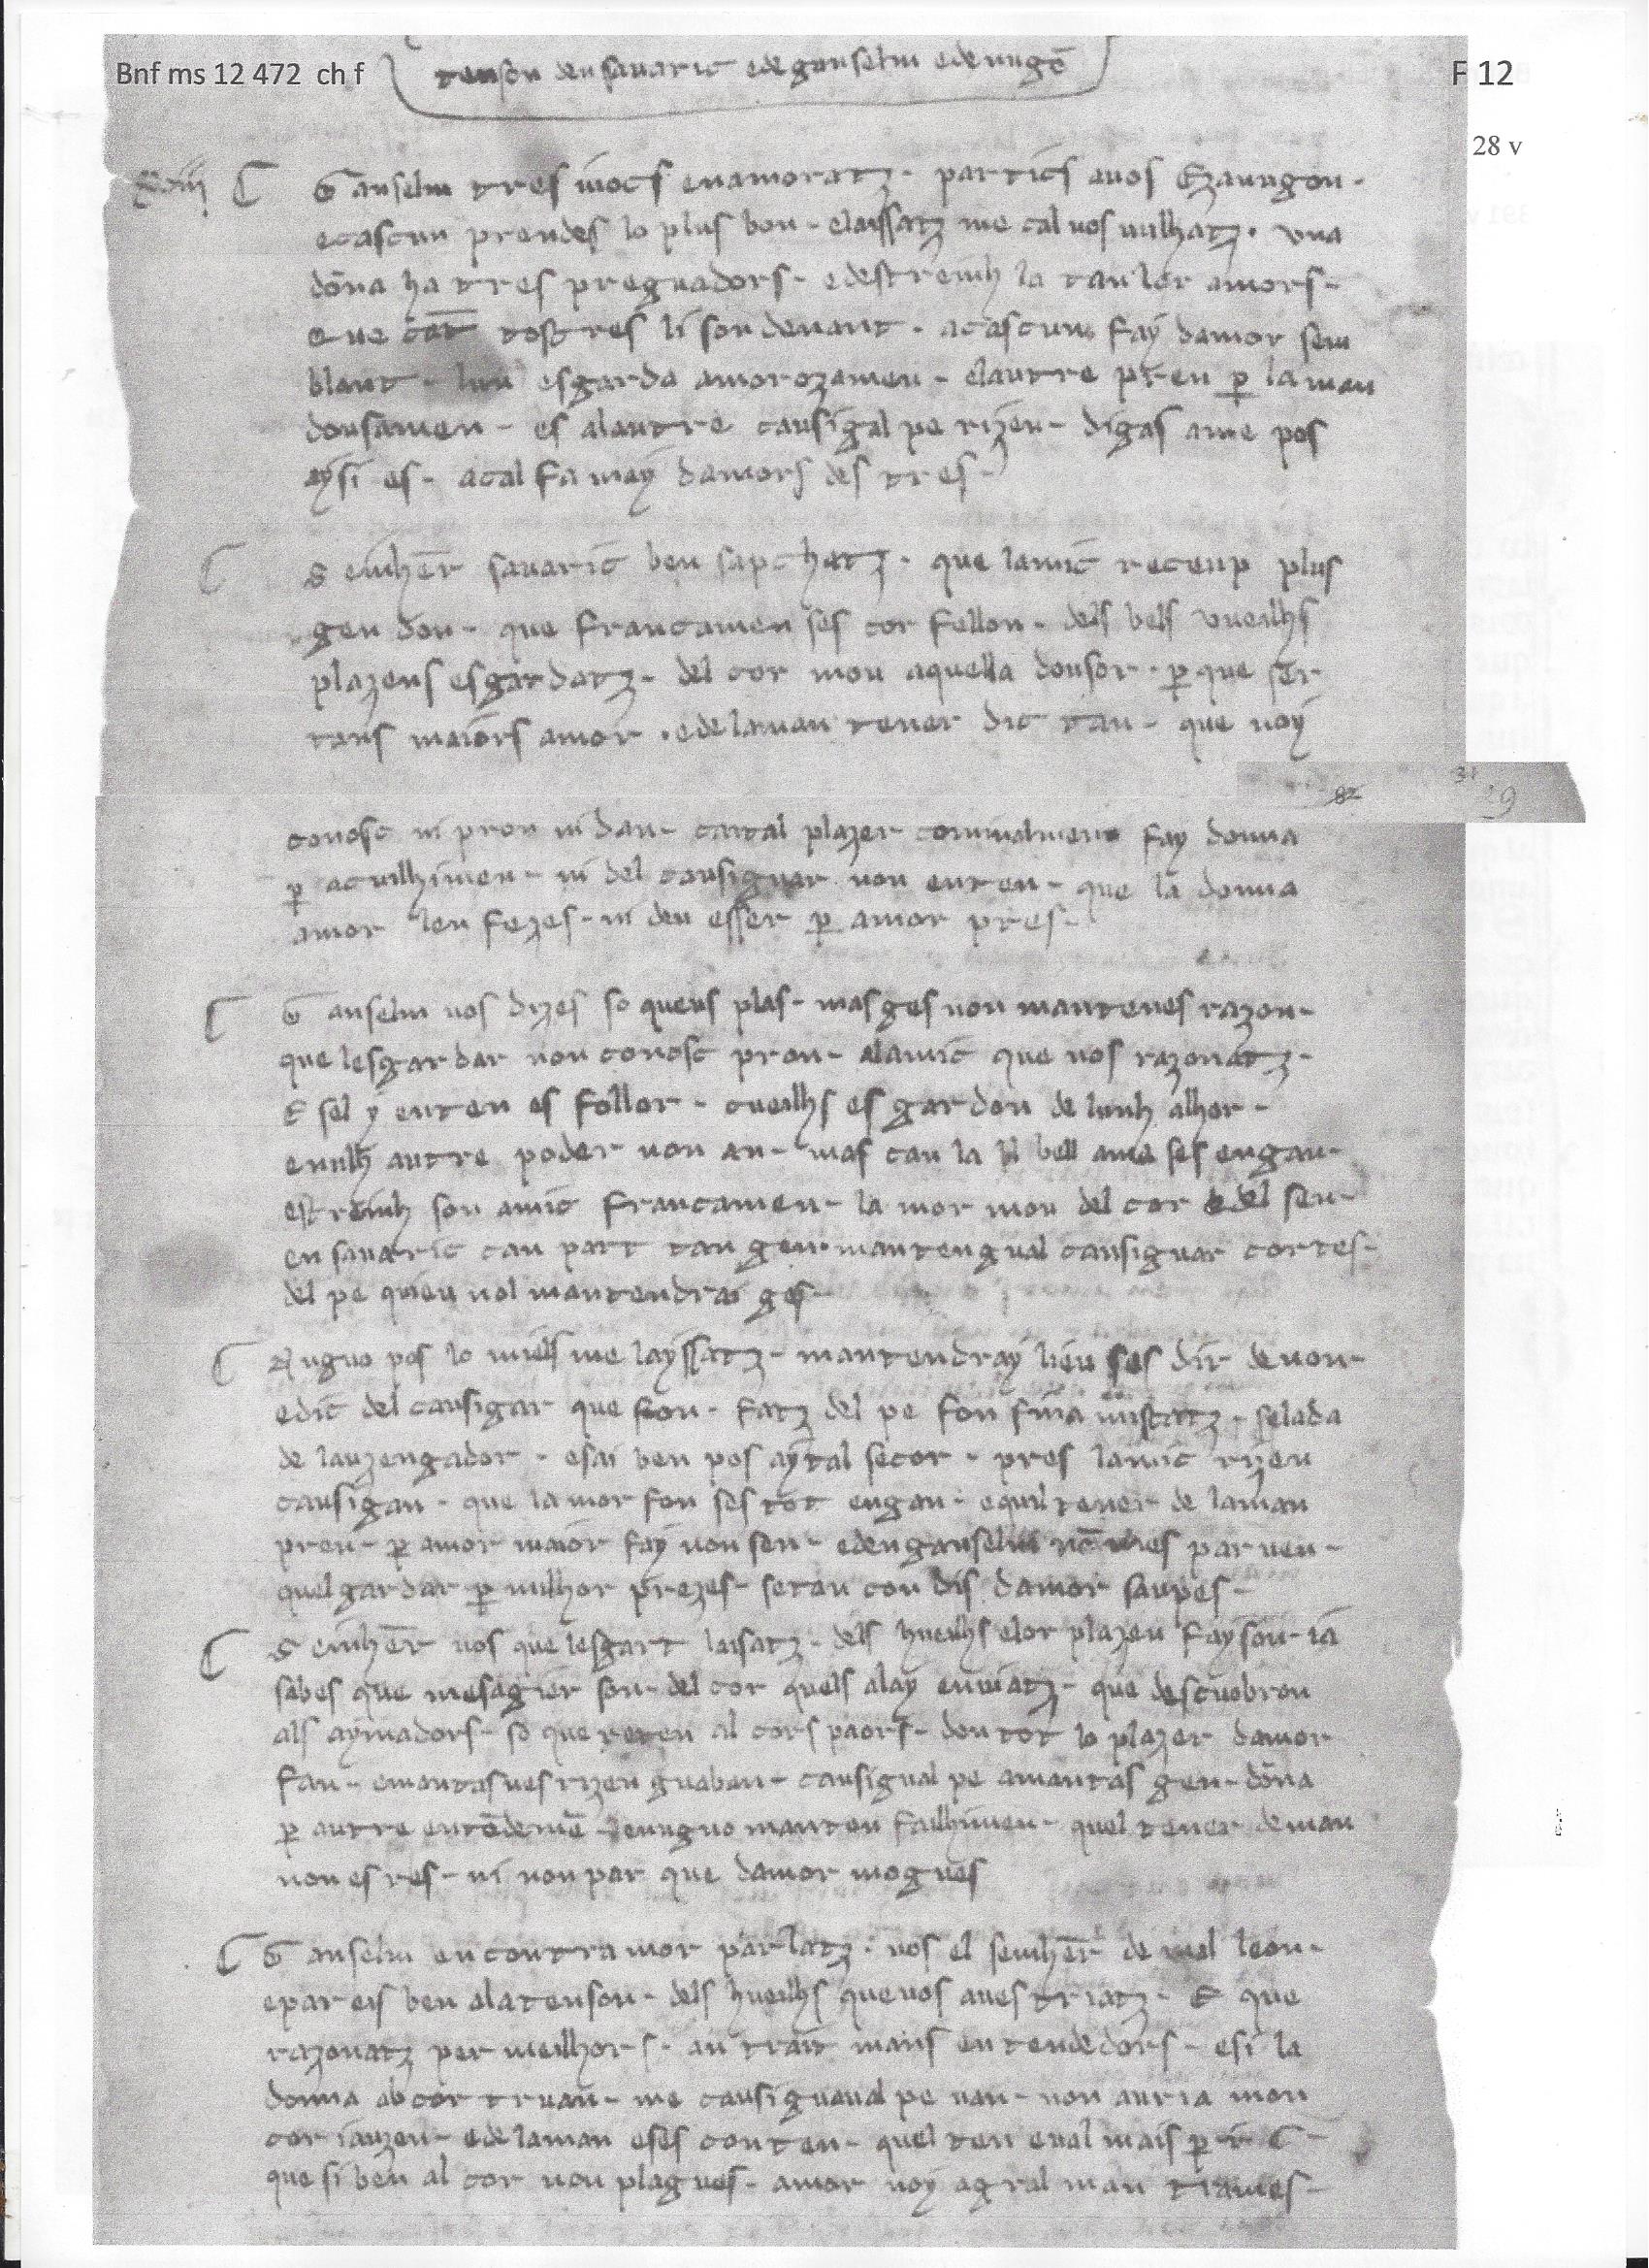 Bnf ms 12 472 ch f
tenson den savaric e de gauselm e de nugō
F 12
28 v
G auselm tres iocs enamoratz · partics avos Ezaungon ·
ecascun prendes lo plus bon · elaissatz me cal vos vulhatz · vna
dōna ha tres preguadors · e destreinh la tan lor amors ·
que cāt tostres li son denant · acascun fay damor sem
blant · lun esgarda amorozamen · elautre pren p̱ la man
dousamen · es alautre causigal pe rizen · digas ame pos
aysi es · acal fa may damors des tres ·
S einhēr savaric ben sapchatz · que lamic receup plus
gen don · que francamen ses cor fellon · dels bels vueilhs
plazens esgardatz · del cor mou aquella dousor · p̱ que ser
tans maiors amor · e de laman tener dic tan · que noy
82
31
29
conosc ni prou ni dan · cartal plazer comunalmens fay donna
p̱ aculhimen · ni del causiguar non enten · que la donna
amor len fezes · ni deu esser p̱ amor pres ·
G auselm vos dizes so queus plas · mas ges non mantenes razon ·
que lesgardar non conosc prou · alamic que vos razonatz ·
E sel y enten es follor · cueilhs esgardon de lunh alhor ·
enulh autre poder non an · mas can la bell ama ses engan ·
estreinh son amic francamen · la mor mou del cor e del sen ·
en savaric can part tan gen · mantengual causiguar cortes ·
del pe quieu nol mantendrai ges ·
N ugno pos lo miels me layssatz · mantendray lieu ses dir de non ·
edic del causigar que fon · fatz del pe fon fina mistatz · selada
de lauzengador · esai ben pos aytal secor · pres lamic rizen
causigan · que lamor fon ses tot engan · equil tener de laman
pren · p̱ amor maior fay non sen · eden gauselm nō mes parven ·
quel gardar p̱ milhor prezes · se tan con dis damor saupes ·
S einhēr vos que lesgart laisatz · dels hueilhs elor plazen fayson · ia
sabes que mesagier son · del cor quels alay enviatz · que descuobron
als aymadors · so que reten al cors paors · don tot lo plazer damor
fan · emantas ves rizen guaben · causigual pe amantas gen · dōna
p̱ autre entēdemē · enugno manten falhimen · quel tener deman
non es res · ni non par que damor mogues
G auselm encontramor parlatz · vos el seinhēr de mal leon ·
epareis ben alatenson · dels hueilhs que vos aves triatz · E que
razonatz per meilhors · an trait mans entendedors · esi la
donna ab cor truan · me causiguaval pe van · non auria mon
cor iauzen · e de laman eses conten · quel ten eval mais p̱
que si ben al cor non plagues · amor noy agral man trames ·